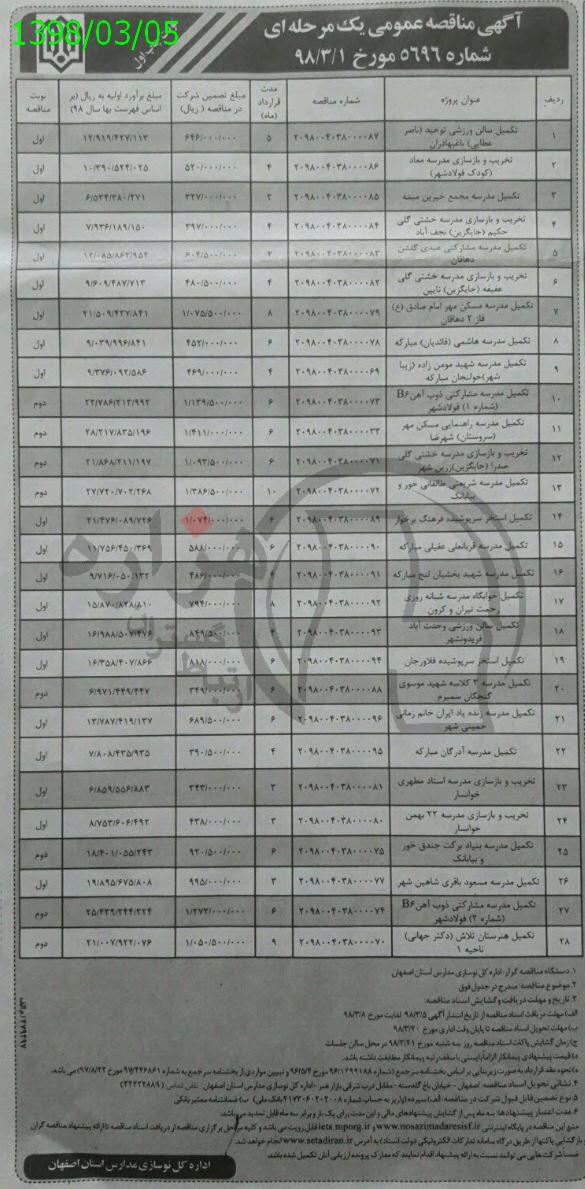 1398/03/05
آگهی مناقصه عمومی یک مرحله ای
شماره ۵۶۹۶ مورخ ۹۸/۳/۱
نوبت اول
ردیف عنوان پروژه شماره مناقصه مدت قرارداد (ماه) مبلغ تضمین شرکت در مناقصه (ریال) مبلغ برآورد اولیه به ریال (بر اساس فهرست بها سال ۹۸) نوبت مناقصه
۱ تکمیل سالن ورزشی توحید (ناصر عطایی) باغبهادران ۲۰۹۸۰۰۴۰۳۸۰۰۰۰۸۷ ۵ ۶۴۶/۰۰۰/۰۰۰ ۱۲/۹۱۹/۴۲۷/۱۱۳ اول
۲ تخریب و بازسازی مدرسه معاد (کودک فولادشهر) ۲۰۹۸۰۰۴۰۳۸۰۰۰۰۸۶ ۴ ۵۲۰/۰۰۰/۰۰۰ ۱۰/۳۹۰/۵۲۴/۰۲۵ اول
۳ تکمیل مدرسه مجمع خیرین میمه ۲۰۹۸۰۰۴۰۳۸۰۰۰۰۸۵ ۲ ۳۲۷/۰۰۰/۰۰۰ ۶/۵۳۴/۳۸۰/۲۷۱ اول
۴ تخریب و بازسازی مدرسه خشتی گلی حکیم (جایگزین) نجف آباد ۲۰۹۸۰۰۴۰۳۸۰۰۰۰۸۴ ۴ ۳۹۷/۰۰۰/۰۰۰ ۷/۹۳۶/۱۸۹/۱۵۰ اول
۵ تکمیل مدرسه مشارکتی عبدی گلشن دهاقان ۲۰۹۸۰۰۴۰۳۸۰۰۰۰۸۳ ۴ ۶۰۴/۵۰۰/۰۰۰ ۱۲/۰۸۵/۸۶۲/۹۵۴ اول
۶ تخریب و بازسازی مدرسه خشتی گلی عفیفه (جایگزین) نایین ۲۰۹۸۰۰۴۰۳۸۰۰۰۰۸۲ ۴ ۴۸۰/۵۰۰/۰۰۰ ۹/۶۰۹/۴۸۷/۷۱۳ اول
۷ تکمیل مدرسه مسکن مهر امام صادق (ع) فاز ۲ دهاقان ۲۰۹۸۰۰۴۰۳۸۰۰۰۰۷۹ ۸ ۱/۰۷۵/۵۰۰/۰۰۰ ۲۱/۵۰۹/۴۳۷/۸۴۱ اول
۸ تکمیل مدرسه هاشمی (قائدیان) مبارکه ۲۰۹۸۰۰۴۰۳۸۰۰۰۰۷۸ ۶ ۴۵۲/۰۰۰/۰۰۰ ۹/۰۳۹/۹۹۶/۸۴۱ اول
۹ تکمیل مدرسه شهید مومن زاده (زیبا شهر)خولنجان مبارکه ۲۰۹۸۰۰۴۰۳۸۰۰۰۰۶۹ ۴ ۴۶۹/۰۰۰/۰۰۰ ۹/۳۷۶/۰۹۲/۵۸۶ اول
۱۰ تکمیل مدرسه مشارکتی ذوب آهن B۶ (شماره ۱) فولادشهر ۲۰۹۸۰۰۴۰۳۸۰۰۰۰۷۳ ۶ ۱/۱۳۹/۵۰۰/۰۰۰ ۲۲/۷۸۶/۲۱۳/۹۹۲ دوم
۱۱ تکمیل مدرسه راهنمایی مسکن مهر (سروستان) شهرضا ۲۰۹۸۰۰۴۰۳۸۰۰۰۰۳۳ ۶ ۱/۴۱۱/۰۰۰/۰۰۰ ۲۸/۲۱۷/۸۳۵/۱۹۶ دوم
۱۲ تخریب و بازسازی مدرسه خشتی گلی صدرا (جایگزین)زرین شهر ۲۰۹۸۰۰۴۰۳۸۰۰۰۰۷۱ ۶ ۱/۰۹۳/۵۰۰/۰۰۰ ۲۱/۸۶۸/۲۱۱/۱۹۷ دوم
۱۳ تکمیل مدرسه شریعتی طالقانی خور و بیابانک ۲۰۹۸۰۰۴۰۳۸۰۰۰۰۷۲ ۱۰ ۱/۳۸۶/۵۰۰/۰۰۰ ۲۷/۷۲۰/۷۰۲/۲۶۸ دوم
۱۴ تکمیل استخر سرپوشیده فرهنگ برخوار ۲۰۹۸۰۰۴۰۳۸۰۰۰۰۸۹ ۶ ۱/۰۷۴/۰۰۰/۰۰۰ ۲۱/۴۷۶/۰۸۹/۷۲۶ اول
۱۵ تکمیل مدرسه قربانعلی عقیلی مبارکه ۲۰۹۸۰۰۴۰۳۸۰۰۰۰۹۰ ۶ ۵۸۸/۰۰۰/۰۰۰ ۱۱/۷۵۶/۴۵۰/۳۶۹ اول
۱۶ تکمیل مدرسه شهید بخشیان لنج مبارکه ۲۰۹۸۰۰۴۰۳۸۰۰۰۰۹۱ ۴۸۶/۰۰۰/۰۰۰ ۹/۷۱۶/۰۵۰/۱۳۲ اول
۱۷ تکمیل خوابگاه مدرسه شبانه روزی رحمت تیران و کرون ۲۰۹۸۰۰۴۰۳۸۰۰۰۰۹۲ ۸ ۷۹۴/۰۰۰/۰۰۰ ۱۵/۸۷۰/۸۲۸/۸۱۰ اول
۱۸ تکمیل سالن ورزشی وحدت آباد فریدونشهر ۲۰۹۸۰۰۴۰۳۸۰۰۰۰۹۳ ۸۴۹/۵۰۰/۰۰۰ ۱۶/۹۸۸/۵۰۷/۴۷۶ اول
۱۹ تکمیل استخر سرپوشیده فلاورجان ۲۰۹۸۰۰۴۰۳۸۰۰۰۰۹۴ ۶ ۸۱۸/۰۰۰/۰۰۰ ۱۶/۳۵۸/۴۰۷/۸۶۶ اول
۲۰ تکمیل مدرسه ۳ کلاسه شهید موسوی گنجگان سمیرم ۲۰۹۸۰۰۴۰۳۸۰۰۰۰۸۸ ۶ ۳۴۹/۰۰۰/۰۰۰ ۶/۹۷۱/۴۴۹/۴۴۷ دوم
۲۱ تکمیل مدرسه زنده یاد ایران خانم زمانی خمینی شهر ۲۰۹۸۰۰۴۰۳۸۰۰۰۰۹۶ ۶ ۶۸۹/۵۰۰/۰۰۰ ۱۳/۷۸۷/۴۱۹/۱۳۷ اول
۲۲ تکمیل مدرسه آدرگان مبارکه ۲۰۹۸۰۰۴۰۳۸۰۰۰۰۹۵ ۴ ۳۹۰/۵۰۰/۰۰۰ ۷/۸۰۸/۴۳۵/۹۳۵ اول
۲۳ تخریب و بازسازی مدرسه استاد مطهری خوانسار ۲۰۹۸۰۰۴۰۳۸۰۰۰۰۸۱ ۳ ۳۴۳/۰۰۰/۰۰۰ ۶/۸۵۹/۵۵۶/۸۸۳ اول
۲۴ تخریب و بازسازی مدرسه ۲۲ بهمن خوانسار ۲۰۹۸۰۰۴۰۳۸۰۰۰۰۸۰ ۳ ۴۳۸/۰۰۰/۰۰۰ ۸/۷۵۳/۶۰۶/۴۹۲ اول
۲۵ تکمیل مدرسه بنیاد برکت جندق خور و بیابانک ۲۰۹۸۰۰۴۰۳۸۰۰۰۰۷۵ ۶ ۹۲۰/۵۰۰/۰۰۰ ۱۸/۴۰۱/۰۵۵/۲۴۳ دوم
۲۶ تکمیل مدرسه مسعود باقری شاهین شهر ۲۰۹۸۰۰۴۰۳۸۰۰۰۰۷۷ ۳ ۹۹۵/۰۰۰/۰۰۰ ۱۹/۸۹۵/۶۷۵/۸۰۸ اول
۲۷ تکمیل مدرسه مشارکتی ذوب آهن B۶ (شماره ۲) فولادشهر ۲۰۹۸۰۰۴۰۳۸۰۰۰۰۷۴ ۶ ۱/۲۷۲/۰۰۰/۰۰۰ ۲۵/۴۳۹/۲۴۴/۲۲۴ دوم
۲۸ تکمیل هنرستان تلاش (دکتر جهانی) ناحیه ۱ ۲۰۹۸۰۰۴۰۳۸۰۰۰۰۷۰ ۹ ۱/۰۵۰/۵۰۰/۰۰۰ ۲۱/۰۰۷/۹۲۲/۰۷۶ دوم
۱. دستگاه مناقصه گزار: اداره کل نوسازی مدارس استان اصفهان
۲. موضوع مناقصه: مندرج در جدول فوق
۳. تاریخ و مهلت دریافت و گشایش اسناد مناقصه:
الف) مهلت دریافت اسناد مناقصه از تاریخ انتشار آگهی ۹۸/۳/۵ لغایت مورخ ۹۸/۳/۸
ب) مهلت تحویل اسناد مناقصه تا پایان وقت اداری مورخ ۹۸/۳/۲۰
ج) زمان گشایش پاکات اسناد مناقصه روز سه شنبه مورخ ۹۸/۳/۲۱ در محل سالن جلسات
د) قیمت پیشنهادی پیمانکار الزاماً بایستی با سقف رتبه پیمانکار مطابقت داشته باشد.
ه) نحوه عقد قرارداد به صورت زیربنایی بر اساس بخشنامه سرجمع (شماره ۹۶/۱۲۹۹۱۸۸ مورخ ۹۶/۵/۴ و تبیین مواردی از بخشنامه سرجمع به شماره ۹۷/۴۴۶۸۶۱ مورخ ۹۷/۸/۲۲) می باشد.
۴. نشانی تحویل اسناد مناقصه: اصفهان - خیابان باغ گلدسته - مقابل درب شرقی بازار هنر - اداره کل نوسازی مدارس استان اصفهان تلفن تماس (۳۲۲۲۲۸۸۹)
۶. مدت اعتبار پیشنهادها: سه ماه پس از گشایش پیشنهادهای مالی و این مدت برای یک بار و برابر سه ماه قابل تمدید می باشد.
متن این مناقصه در پایگاه اینترنتی www.nosazimadaresisf.ir و iets.mporg.ir قابل رویت می باشد و کلیه مراحل برگزاری مناقصه از دریافت اسناد مناقصه تا ارائه پیشنهاد مناقصه گران
و بازگشایی پاکتها از طریق درگاه سامانه تدارکات الکترونیکی دولت (ستاد) به آدرس www.setadiran.ir انجام خواهد شد.
ضمناً شرکت هایی می توانند نسبت به ارائه پیشنهاد اقدام نمایند که مدارک پرونده ارزیابی آنان تکمیل شده باشد.
اداره کل نوسازی مدارس استان اصفهان
هزاره
گستران
ارتباط